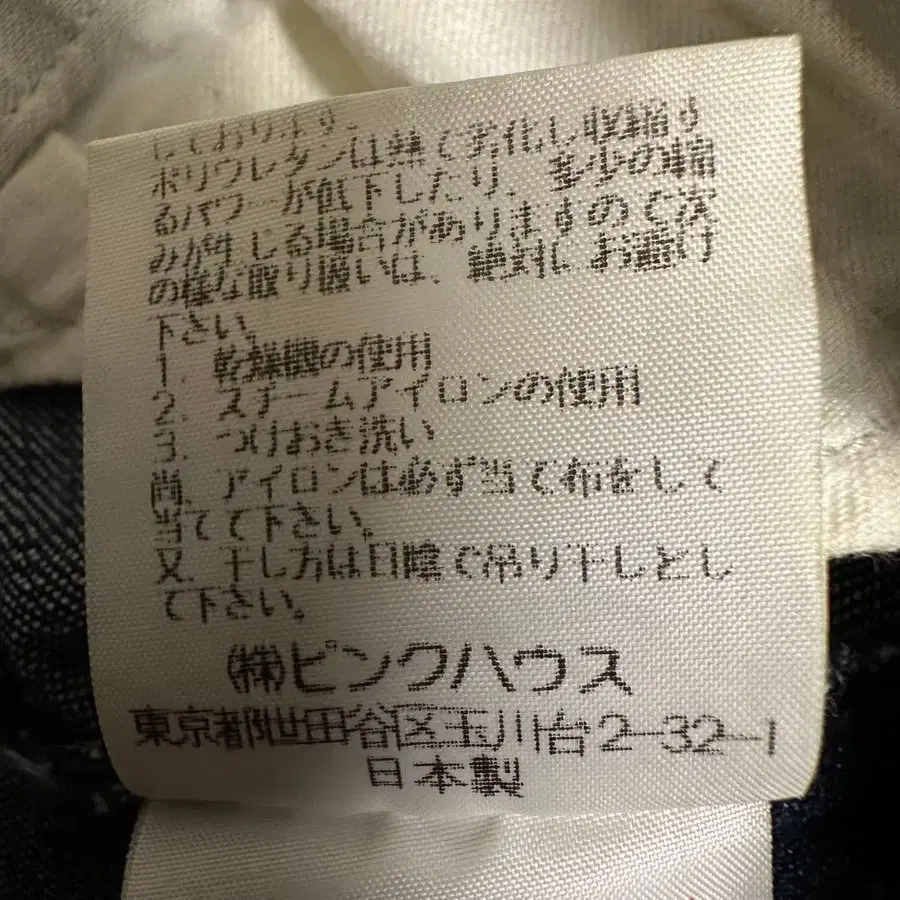 しております。
ポリウレタンは熱で劣化し収縮す
るパワーが低下したり、多少の縮
みが生じる場合がありますので次
の様な取り扱いは、絶対にお避け
下さい。
1. 乾燥機の使用
2. スチームアイロンの使用
3. つけおき洗い
尚、アイロンは必ず当て布をして
当てて下さい。
又、干し方は日陰で吊り干しとし
て下さい。
(株)ピンクハウス
東京都世田谷区玉川台2-32-1
日本製